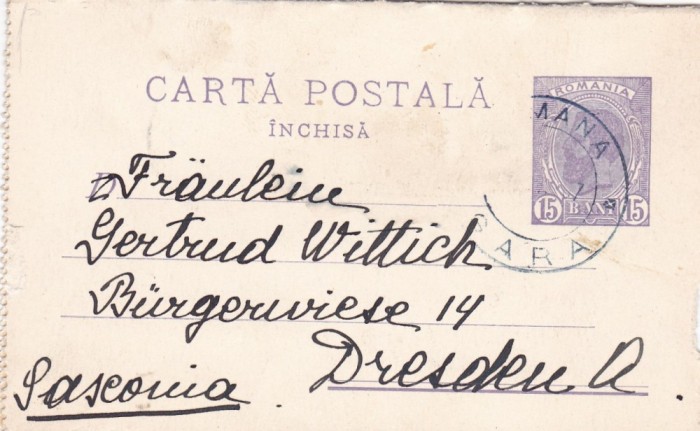 ROMANIA
CARTĂ POSTALĂ
ÎNCHISĂ
15 BANI 15
MANA
GARA
Fräulein
Gertrud Wittich
Bürgerwiese 14
Dresden A.
Saxonia